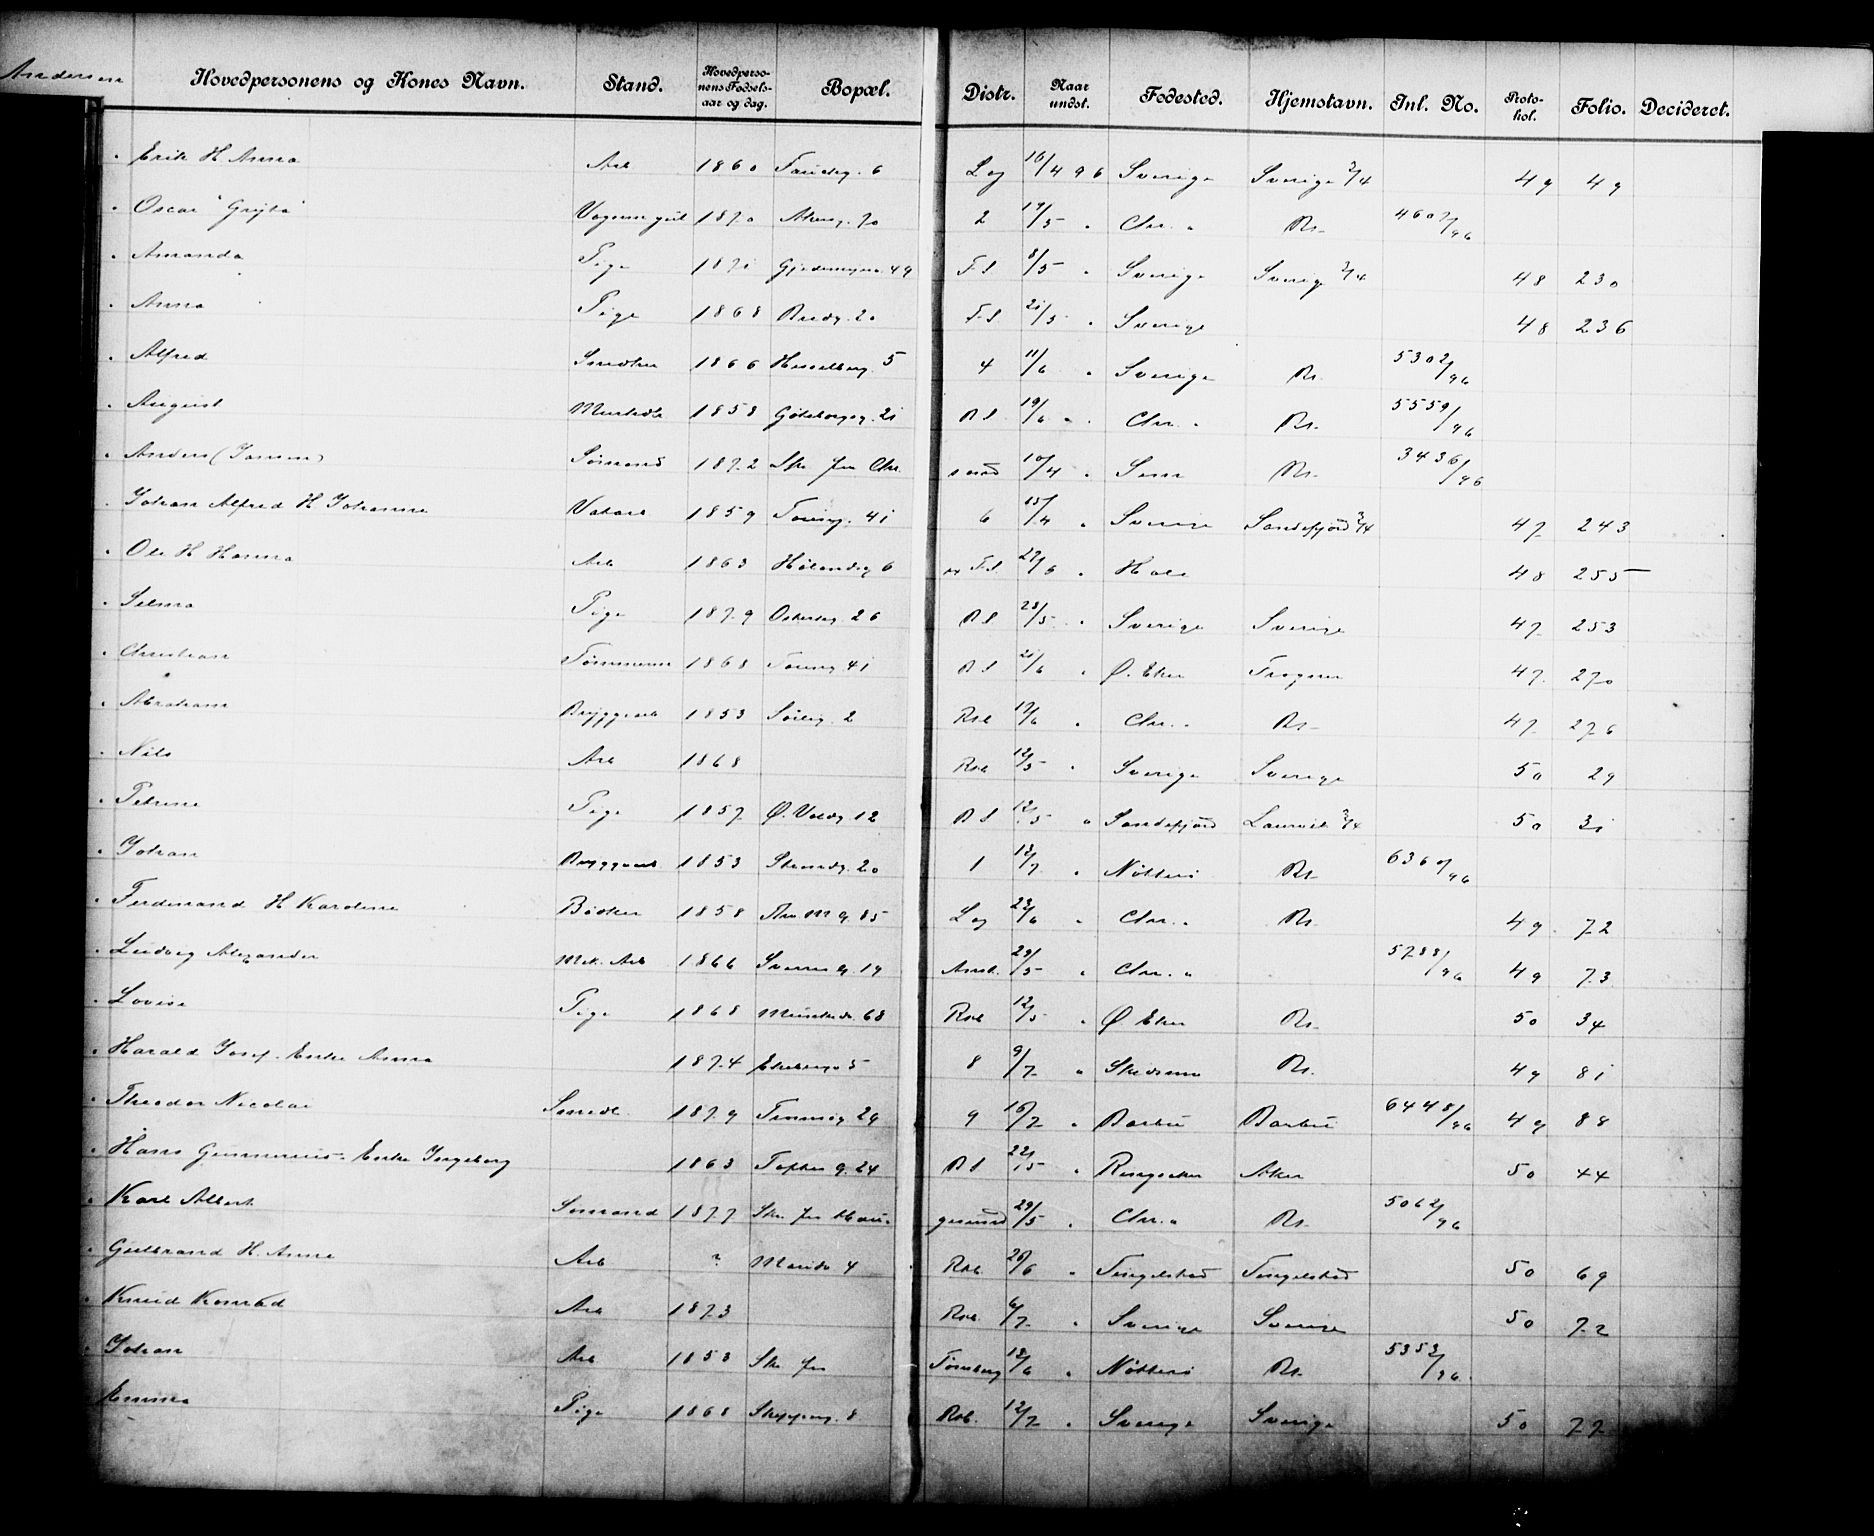 Andersen
Hovedpersonens og Kones Navn. Stand. Hovedpersonens Fødselsaar og dag. Bopæl. Distr. Naar undst. Fødested. Hjemstavn. Inl. No. Protokol. Folio. Decideret.
Erik H Anna Arb 1860 6 Log 16/4 96 Sverige Sverige 3/4 49 49
Oscar "Gryta" 1870 Akersg. 70 2 14/5 " Chr. " Do 4607/96
Amanda Pige 1871 49 F.S. 8/5 " Sverige Sverige 3/4 48 230
Anna Pige 1868 Bredg. 20 F.S. 21/5 " Sverige 48 236
Alfred Snedker 1866 Hesselbergg. 5 4 11/6 " Sverige Do. 5302/96
August 1858 Gøteborgsg. 21 B S 19/6 " Chr. " Do. 5559/96
Anders (Jensen) Sømand 1872 Skr. fra Chr. sund 10/4 " Sem Do. 3436/96
Johan Alfred H Johanne 1859 Torvg. 41 6 15/4 " Sverige Sandefjord 3/4 47 243
Ole H Hanna Arb 1863 Hølandsg 6 F.S. 27/5 " Hole 48 255
Selma Pige 1879 Osterhg. 26 B S 23/5 " Sverige Sverige 47 253
Christian Tømmerm 1868 Torvg. 41 B S 21/6 " Ø. Eker Trogner 47 270
Abraham Bryggearb 1853 2 Rob 17/6 " Chr. " Do 47 276
Nils Arb 1868 Rob 12/5 " Sverige Sverige 50 29
Petrine Pige 1857 Ø. Voldg. 12 B S 12/5 " Sandefjord Laurvik 3/4 50 31
Johan Bryggearb 1853 Strandg. 20 1 13/7 " Nøtterø Do 6360/96
Ferdinand H Karoline Bødker 1858 Thv. M g. 85 Log 23/6 " Chr. " Do. 49 72
Ludvig Alexander Mek. Arb 1866 Sverres g. 19 Amt. 29/5 " Chr. " 5788/96 49 73
Lovise Pige 1868 68 Rob 12/5 " Ø Eker Do. 50 34
Harald Josef. Enke Anna 1874 Ekebergv 5 8 9/7 " Skedsmo Do. 49 81
Theodor Nicolai Smedl. 1879 29 9 16/7 " Barbu Barbu 6448/96 49 88
Hans Gunnerius. Enke Ingeborg 1863 Toftes g. 24 B S 22/5 " Ringsaker Aker 50 44
Karl Albert Sømand 1877 Skr. fra Haugesund 29/5 " Chr. " Do. 5062/96
Gulbrand H. Anne Arb ? Marido 4 Rob. 26/6 " Tingelstad Tingelstad 50 69
Knud Konrad Arb 1873 Rob. 6/7 " Sverige Sverige 50 72
Johan Arb 1853 Skr. fra Tønsberg 13/6 " Nøtterø Do 5353/96
Emma Pige 1868 Skipperg. 8 Rob. 12/7 " Sverige Sverige 50 77